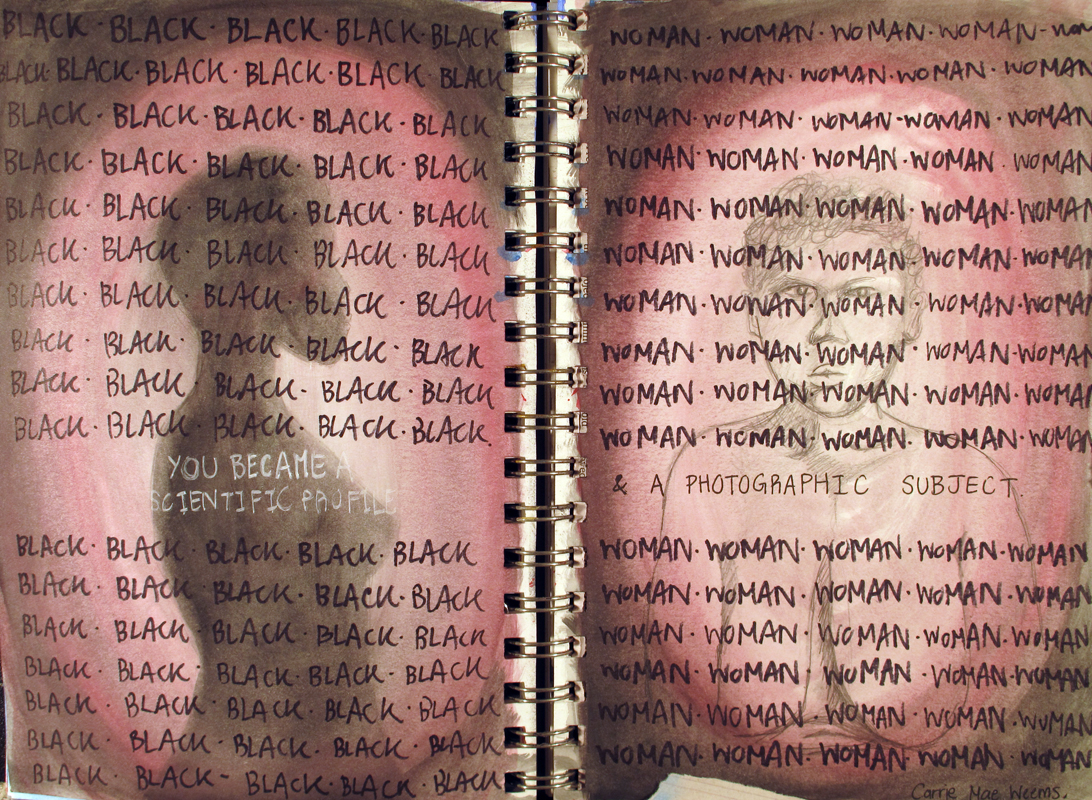 BLACK · BLACK · BLACK · BLACK · BLACK
BLACK · BLACK · BLACK · BLACK · BLACK · BLACK
BLACK · BLACK · BLACK · BLACK · BLACK
BLACK · BLACK · BLACK · BLACK · BLACK
BLACK · BLACK · BLACK · BLACK · BLACK
BLACK · BLACK · BLACK · BLACK · BLACK
BLACK · BLACK · BLACK · BLACK · BLACK
BLACK · BLACK · BLACK · BLACK · BLACK
BLACK · BLACK · BLACK · BLACK · BLACK
BLACK · BLACK · BLACK · BLACK · BLACK.
YOU BECAME A
SCIENTIFIC PROFILE
BLACK · BLACK · BLACK · BLACK · BLACK
BLACK · BLACK · BLACK · BLACK · BLACK
BLACK · BLACK · BLACK · BLACK · BLACK
BLACK · BLACK · BLACK · BLACK · BLACK
BLACK · BLACK · BLACK · BLACK · BLACK
BLACK · BLACK · BLACK · BLACK · BLACK
BLACK · BLACK - BLACK · BLACK · BLACK
WOMAN · WOMAN · WOMAN · WOMAN -
WOMAN · WOMAN · WOMAN · WOMAN · WOMAN
WOMAN · WOMAN · WOMAN - WOMAN · WOMAN
WOMAN · WOMAN · WOMAN · WOMAN · WOMAN
WOMAN · WOMAN · WOMAN · WOMAN · WOMAN
WOMAN · WOMAN · WOMAN · WOMAN · WOMAN
WOMAN · WOMAN · WOMAN · WOMAN · WOMAN
WOMAN · WOMAN · WOMAN · WOMAN · WOMAN
WOMAN · WOMAN · WOMAN · WOMAN · WOMAN
WOMAN · WOMAN · WOMAN · WOMAN · WOMAN
& A PHOTOGRAPHIC SUBJECT.
WOMAN · WOMAN · WOMAN · WOMAN · WOMAN
WOMAN · WOMAN · WOMAN · WOMAN · WOMAN
WOMAN · WOMAN · WOMAN · WOMAN · WOMAN
WOMAN · WOMAN · WOMAN · WOMAN · WOMAN
WOMAN · WOMAN · WOMAN · WOMAN · WOMAN
WOMAN · WOMAN · WOMAN · WOMAN · WOMAN
Carrie Mae Weems.